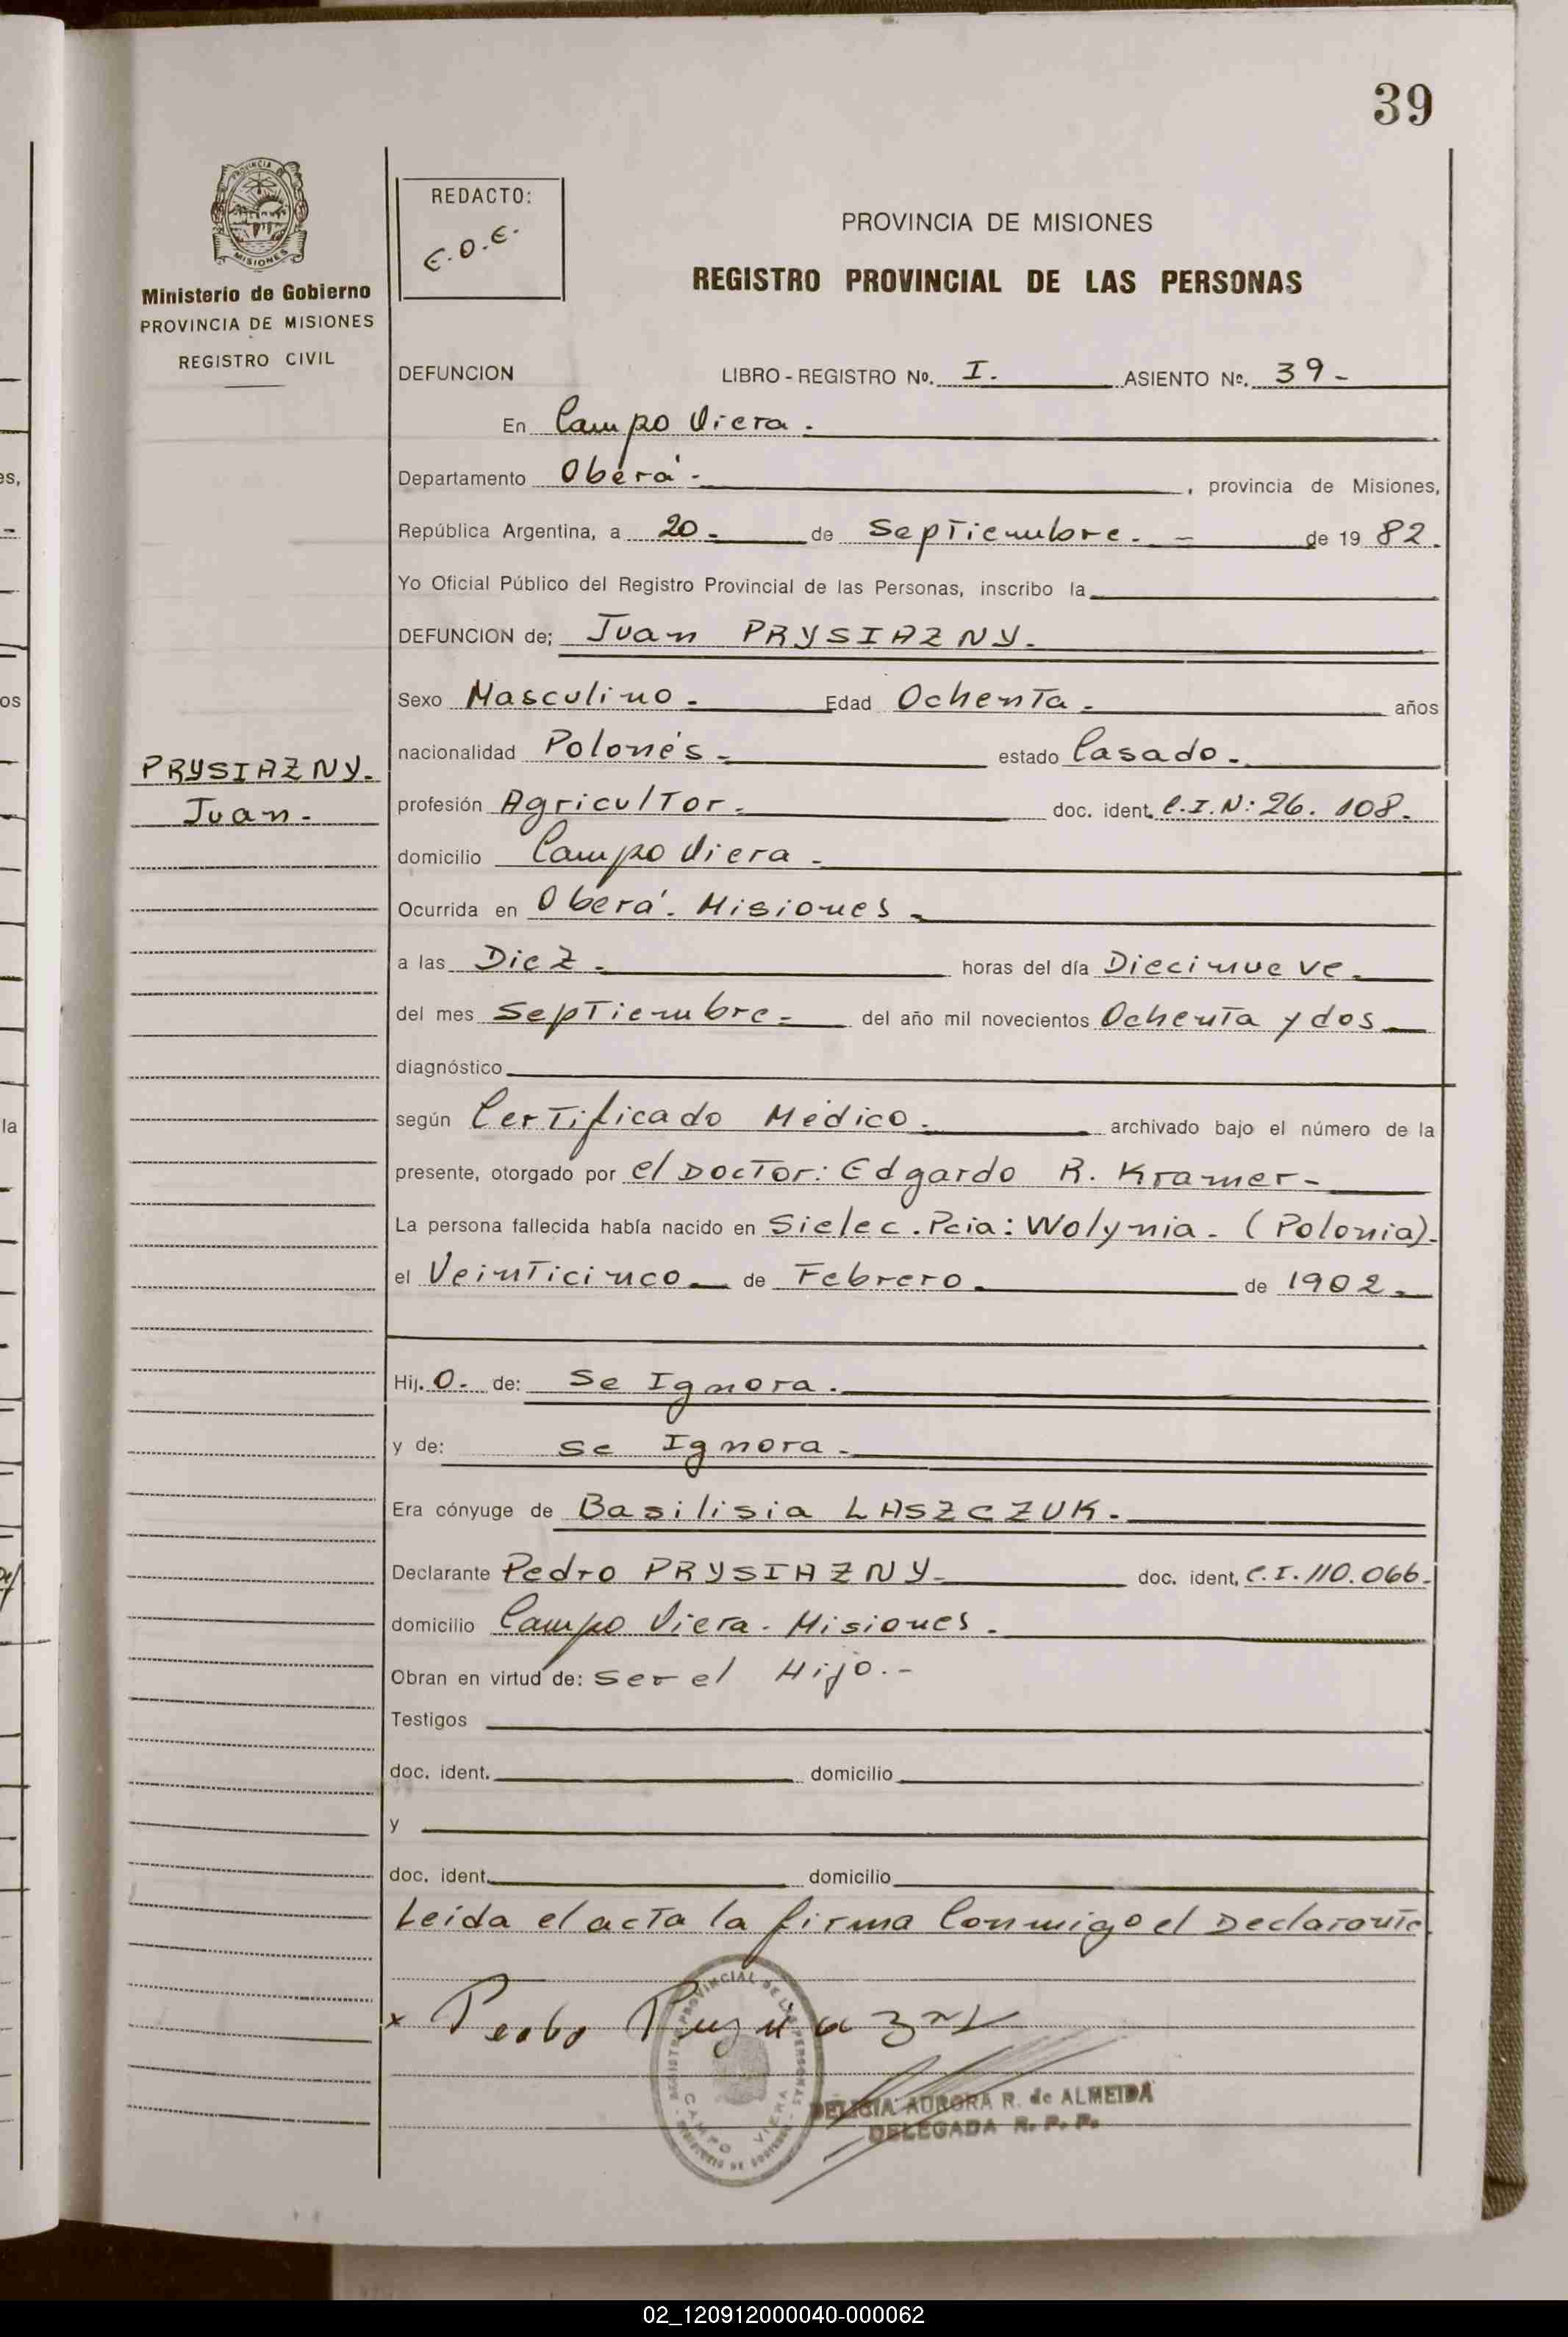 39
PROVINCIA
MISIONES
Ministerio de Gobierno
PROVINCIA DE MISIONES
REGISTRO CIVIL
REDACTO:
E.O.E.
PROVINCIA DE MISIONES
REGISTRO PROVINCIAL DE LAS PERSONAS
DEFUNCION LIBRO - REGISTRO Nº. I. ASIENTO Nº. 39-
En Campo Viera.
Departamento Oberá- , provincia de Misiones,
República Argentina, a 20- de Septiembre. - de 19 82.
Yo Oficial Público del Registro Provincial de las Personas, inscribo la
DEFUNCION de; Juan PRYSIAZNY.
Sexo Masculino. Edad Ochenta. años
nacionalidad Polonés- estado Casado.
PRYSIAZNY.
Juan.
profesión Agricultor. doc. ident. C.I.N: 26.108.
domicilio Campo Viera-
Ocurrida en Oberá. Misiones-
a las Diez. horas del día Diecinueve.
del mes Septiembre- del año mil novecientos Ochenta y dos
diagnóstico
según Certificado Médico. archivado bajo el número de la
presente, otorgado por el Doctor: Edgardo R. Kramer-
La persona fallecida había nacido en Sielec. Pcia: Wolynia- (Polonia).
el Veinticinco de Febrero. de 1902.
Hij.O. de: Se Ignora.
y de: Se Ignora.
Era cónyuge de Basilisia LASZCZUK.
Declarante Pedro PRYSIAZNY- doc. ident. C.I. 110.066.
domicilio Campo Viera- Misiones.
Obran en virtud de: ser el Hijo.-
Testigos
doc. ident. domicilio
y
doc. ident. domicilio
Leída el acta la firma Conmigo el Declarante
x Pedro
REGISTRO PROVINCIAL DE LAS PERSONAS
CAMPO VIERA
MINISTERIO DE GOBIERNO
DELICIA AURORA R. de ALMEIDA
DELEGADA R. P. P.
02_120912000040-000062